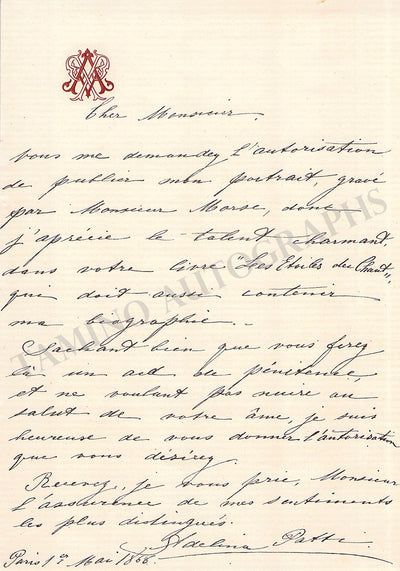 Cher Monsieur,
vous me demandez l'autorisation
de publier mon portrait, gravé
par Monsieur Morse, dont
j'aprécie le talent charmant,
dans votre livre "Les Etoiles du Chant",
qui doit aussi contenir
ma biographie. -
Sachant bien que vous ferez
là un acte de pénitence,
et ne voulant pas nuire au
salut de votre âme, je suis
heureuse de vous donner l'autorisation
que vous désirez.
Recevez, je vous prie, Monsieur
l'assurance de mes sentiments
les plus distingués.
Adelina Patti
Paris 1er Mai
TAMINO AUTOGRAPHS